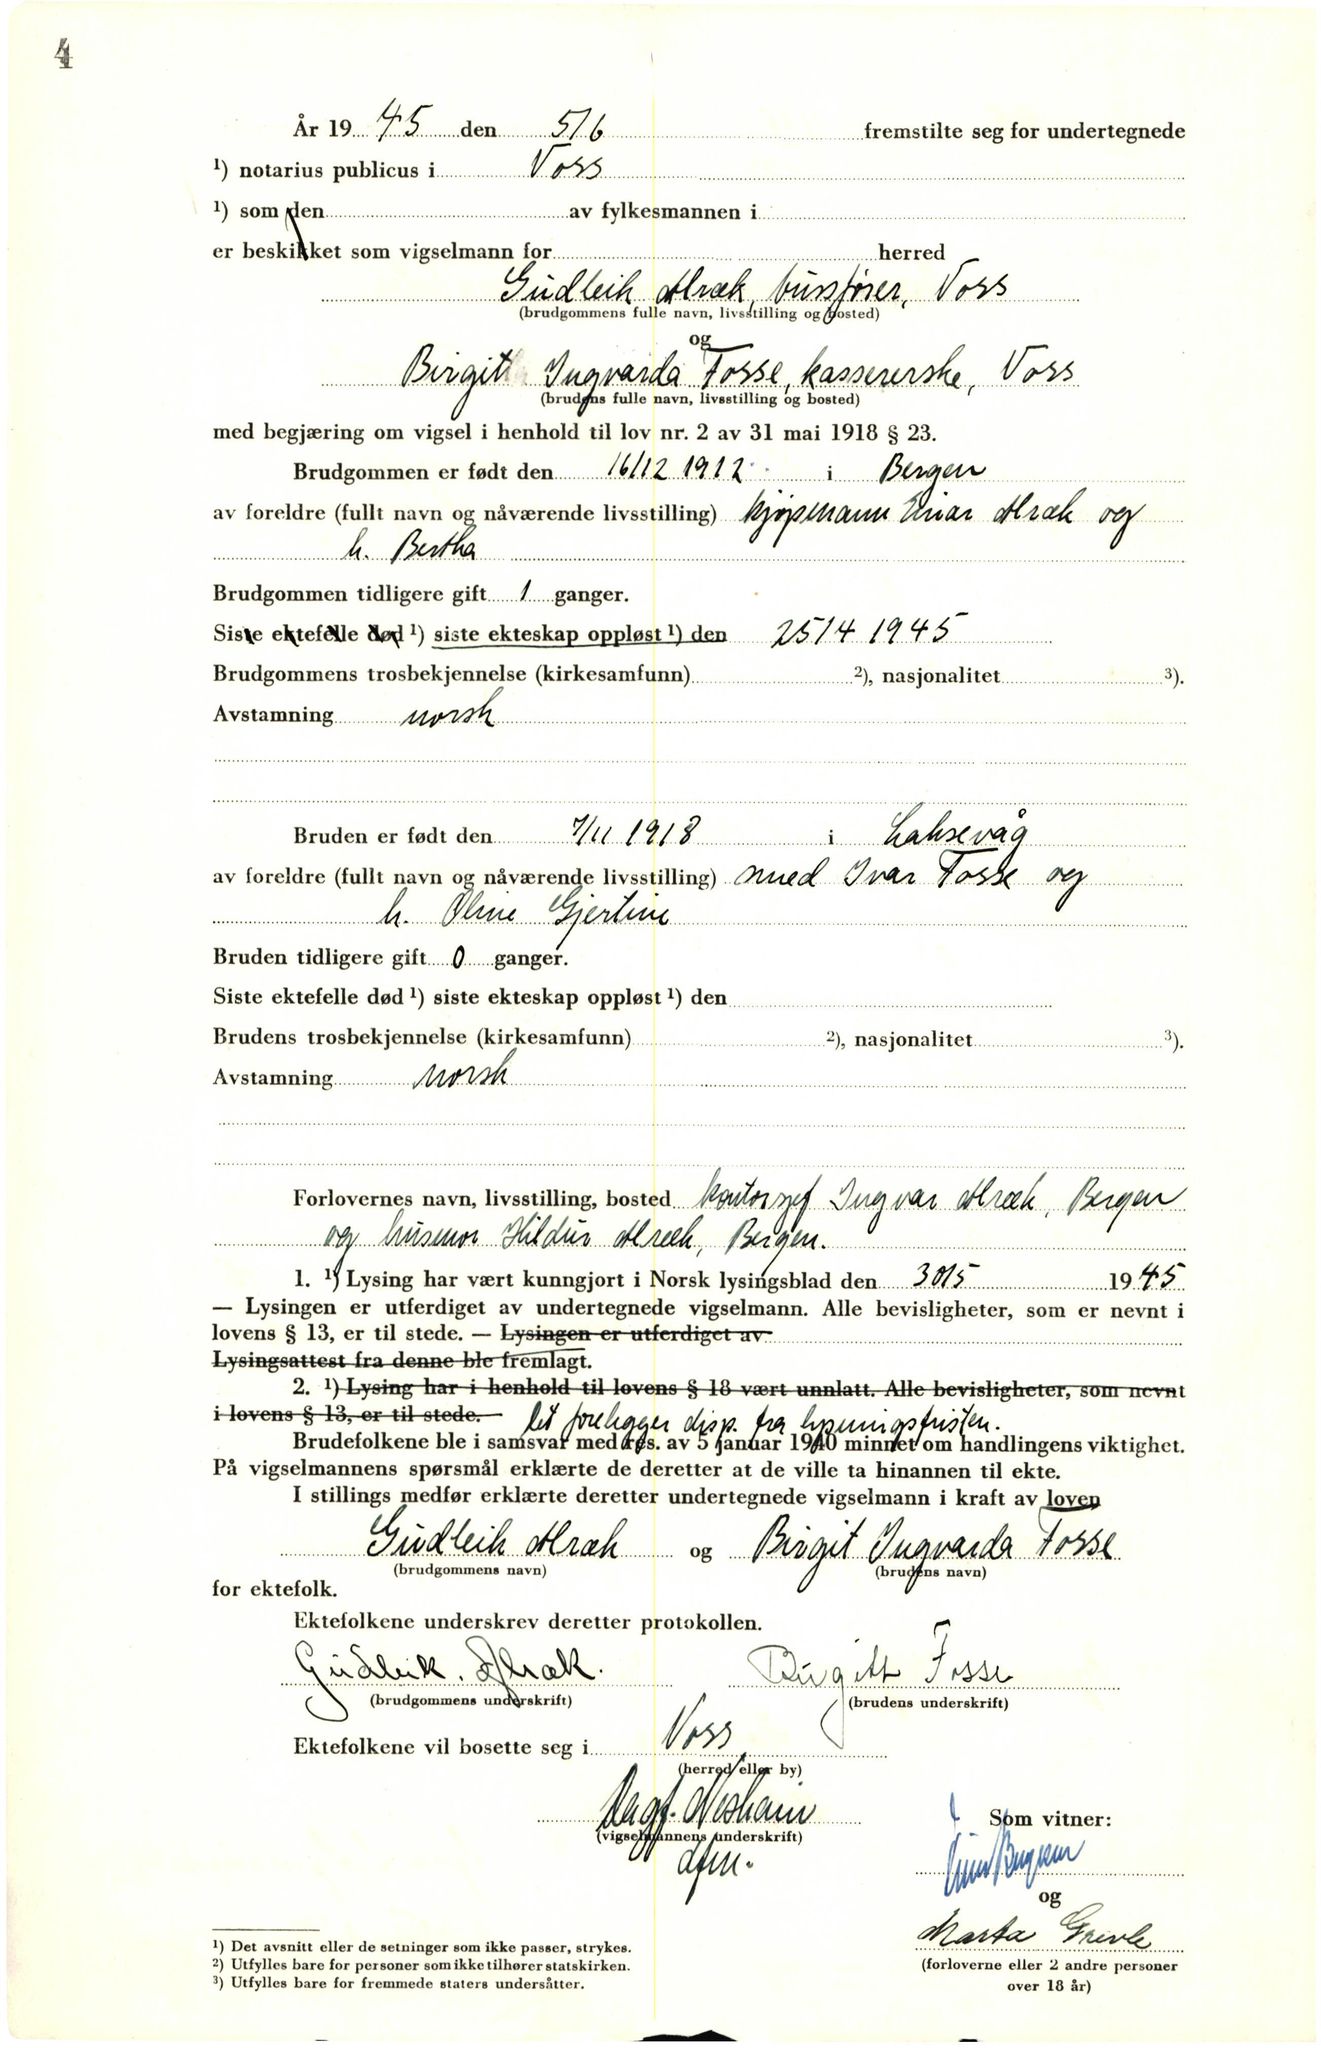 4
År 19 45 den 5/6 fremstilte seg for undertegnede
¹) notarius publicus i Voss
¹) som den av fylkesmannen i
er beskikket som vigselmann for herred
Gudleik Afræk, bussfører, Voss
(brudgommens fulle navn, livsstilling og bosted)
og
Birgit Ingvarda Fosse, kassererske, Voss
(brudens fulle navn, livsstilling og bosted)
med begjæring om vigsel i henhold til lov nr. 2 av 31 mai 1918 § 23.
Brudgommen er født den 16/12 1912 i Bergen
av foreldre (fullt navn og nåværende livsstilling) kjøpmann Einar Afræk og
h. Bertha
Brudgommen tidligere gift 1 ganger.
Siste ektefelle død ¹) siste ekteskap oppløst ¹) den 25/4 1945
Brudgommens trosbekjennelse (kirkesamfunn) ²), nasjonalitet ³).
Avstamning norsk
Bruden er født den 7/11 1918 i Laksevåg
av foreldre (fullt navn og nåværende livsstilling) smed Ivar Fosse og
h. Oline Gjertine
Bruden tidligere gift 0 ganger.
Siste ektefelle død ¹) siste ekteskap oppløst ¹) den
Brudens trosbekjennelse (kirkesamfunn) ²), nasjonalitet ³).
Avstamning norsk
Forlovernes navn, livsstilling, bosted kontorsjef Ingvar Afræk, Bergen
og husmor Hildur Afræk, Bergen.
1. ¹) Lysing har vært kunngjort i Norsk lysingsblad den 30/5 1945
— Lysingen er utferdiget av undertegnede vigselmann. Alle bevisligheter, som er nevnt i
lovens § 13, er til stede. — Lysingen er utferdiget av
Lysingsattest fra denne ble fremlagt.
2. ¹) Lysing har i henhold til lovens § 18 vært unnlatt. Alle bevisligheter, som nevnt
i lovens § 13, er til stede. — Det foreligger disp. fra lysningsfristen.
Brudefolkene ble i samsvar med res. av 5 januar 1940 minnet om handlingens viktighet.
På vigselmannens spørsmål erklærte de deretter at de ville ta hinannen til ekte.
I stillings medfør erklærte deretter undertegnede vigselmann i kraft av loven
Gudleik Afræk og Birgit Ingvarda Fosse
(brudgommens navn) (brudens navn)
for ektefolk.
Ektefolkene underskrev deretter protokollen.
Gudleik. Afræk. Birgitt Fosse
(brudgommens underskrift) (brudens underskrift)
Ektefolkene vil bosette seg i Voss
(herred eller by)
Dagf. Nesheim
(vigselmannens underskrift)
dfm.
Som vitner:
og
Marta Grevle
(forloverne eller 2 andre personer
over 18 år)
¹) Det avsnitt eller de setninger som ikke passer, strykes.
²) Utfylles bare for personer som ikke tilhører statskirken.
³) Utfylles bare for fremmede staters undersåtter.